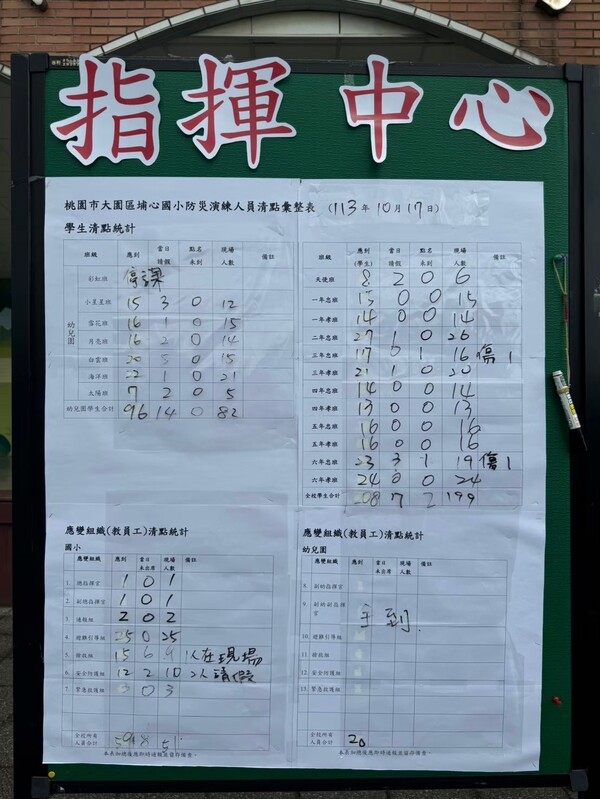 指揮中心
桃園市大園區埔心國小防災演練人員清點彙整表 (113年10月17日)
學生清點統計
班級 應到 當日請假 點名未到 現場人數 備註
彩虹班 停課
幼兒園
小星星班 15 3 0 12
雪花班 16 1 0 15
月亮班 16 2 0 14
白雲班 20 5 0 15
海洋班 22 1 0 21
太陽班 7 2 0 5
幼兒園學生合計 96 14 0 82
班級 應到(學生) 當日請假 點名未到 現場人數 備註
天使班 8 2 0 6
一年忠班 15 0 0 15
一年孝班 14 0 0 14
二年忠班 27 1 0 26
三年忠班 17 0 1 16 傷1
三年孝班 21 1 0 20
四年忠班 14 0 0 14
四年孝班 13 0 0 13
五年忠班 16 0 0 16
五年孝班 16 0 0 16
六年忠班 23 3 1 19 傷1
六年孝班 24 0 0 24
全校學生合計 208 7 2 199
應變組織(教員工)清點統計
國小
應變組織 應到 當日未出席 現場人數 備註
1. 總指揮官 1 0 1
2. 副總指揮官 1 0 1
3. 通報組 2 0 2
4. 避難引導組 25 0 25
5. 搶救組 15 6 9 人在現場
6. 安全防護組 12 2 10 2人請假
7. 緊急救護組 3 0 3
全校所有人員合計 59 8 51
本表如核後應即時通報並留存備查。
應變組織(教員工)清點統計
幼兒園
應變組織 應到 當日未出席 現場人數 備註
8. 副總指揮官
9.
全到.
10. 避難引導組
11. 搶救組
12. 安全防護組
13. 緊急救護組
全校所有人員合計 20